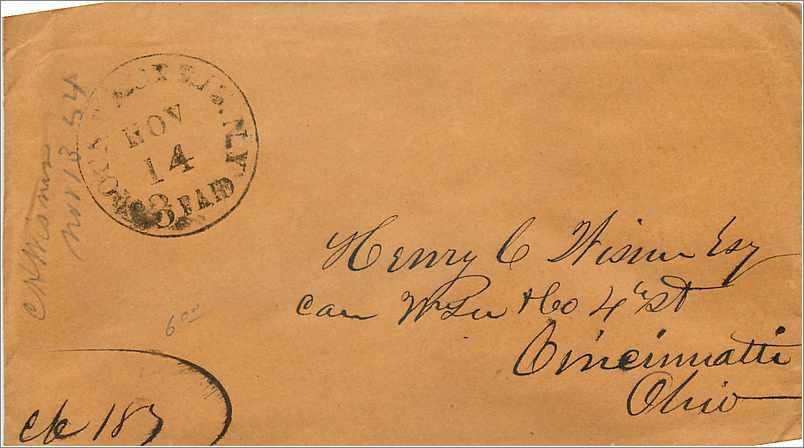 MOUNT MORRIS. N.Y.
NOV
14
3 PAID
Nov 13 54
Henry C Wisner Esq
Care Wm Lee & Co 4th St
Cincinnatti
Ohio
600
ck 187